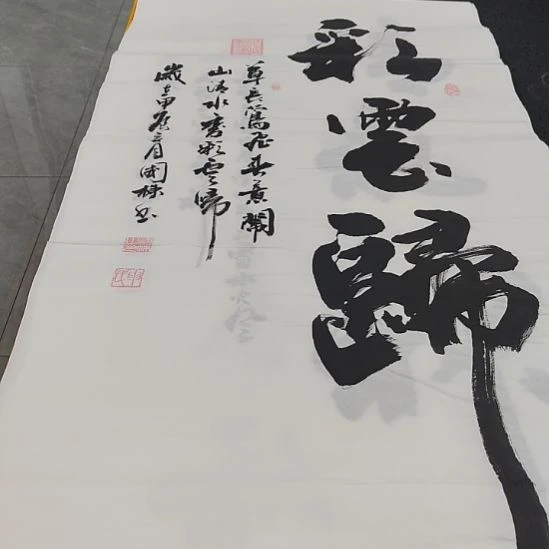 彩雲歸
草長鶯飛春意鬧
山清水秀彩雲歸
歲在甲辰春月國棟書